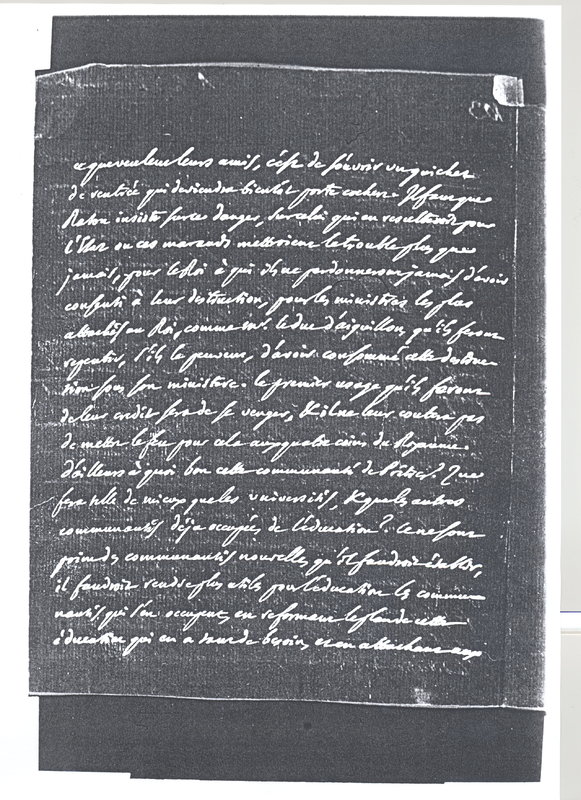 ce que veulent leurs amis, c'est de s'ouvrir un guichet
de rentrée qui deviendra bientôt porte cochere. Il faut que
Raton insiste sur ce danger, sur celui qui en resulteroit pour
l'Etat ou ces marauds mettroient le trouble plus que
jamais, pour le Roi à qui ils ne pardonneront jamais d'avoir
consenti à leur destruction, pour les ministres les plus
attachés au Roi, comme Mr. le duc d'aiguillon, qu'ils feront
repentir, s'ils le peuvent, d'avoir consommé cette destruc-
tion sous son ministere. le premier usage qu'ils feront
de leur credit sera de se venger, & il ne leur coutera pas
de mettre le feu pour cela aux quatre coins du Royaume.
d'ailleurs à quoi bon cette communauté de Prêtres? Que
fera t'elle de mieux que les universités, & que les autres
communautés déja occupées de l'éducation? Ce ne sont
point des communautés nouvelles qu'il faudroit établir,
il faudroit rendre plus utiles pour l'éducation les commu-
nautés qui s'en occupent, en reformant le plan de cette
éducation qui en a tant de besoin, et en attachant aux